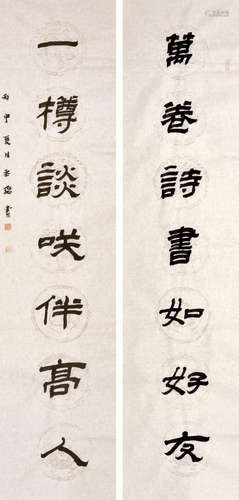 萬卷詩書如好友
一樽談咲伴高人
丙申夏日
書